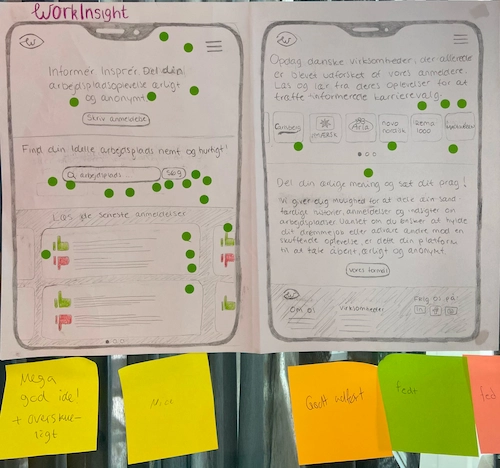 WorkInsight
W
Informér. Inspirér. Del din
arbejdspladsoplevelse ærligt
og anonymt.
Skriv anmeldelse
Find din ideelle arbejdsplads nemt og hurtigt!
arbejdsplads
søg
Læs de seneste anmeldelser
W
Opdag danske virksomheder, der allerede
er blevet udforsket af vores anmeldere.
Læs og lær fra deres oplevelser for at
træffe informerede karrierevalg.
Carlsberg
MÆRSK
Arla
novo
nordisk
rema
1000
Del din ærlige mening og sæt dit præg!
Vi giver dig mulighed for at dele din
færdige historier, anmeldelser og indsigter om
arbejdspladser. Uanset om du ønsker at hylde
dit drømmejob eller advare andre mod en
skuffende oplevelse, er dette din platform
til at tale åbent, ærligt og anonymt.
Vores formål
W
Om os
Virksomheder
Følg os på
in
Mega
god ide!
+ overskue-
ligt
Nice
Godt udført
fedt
fed